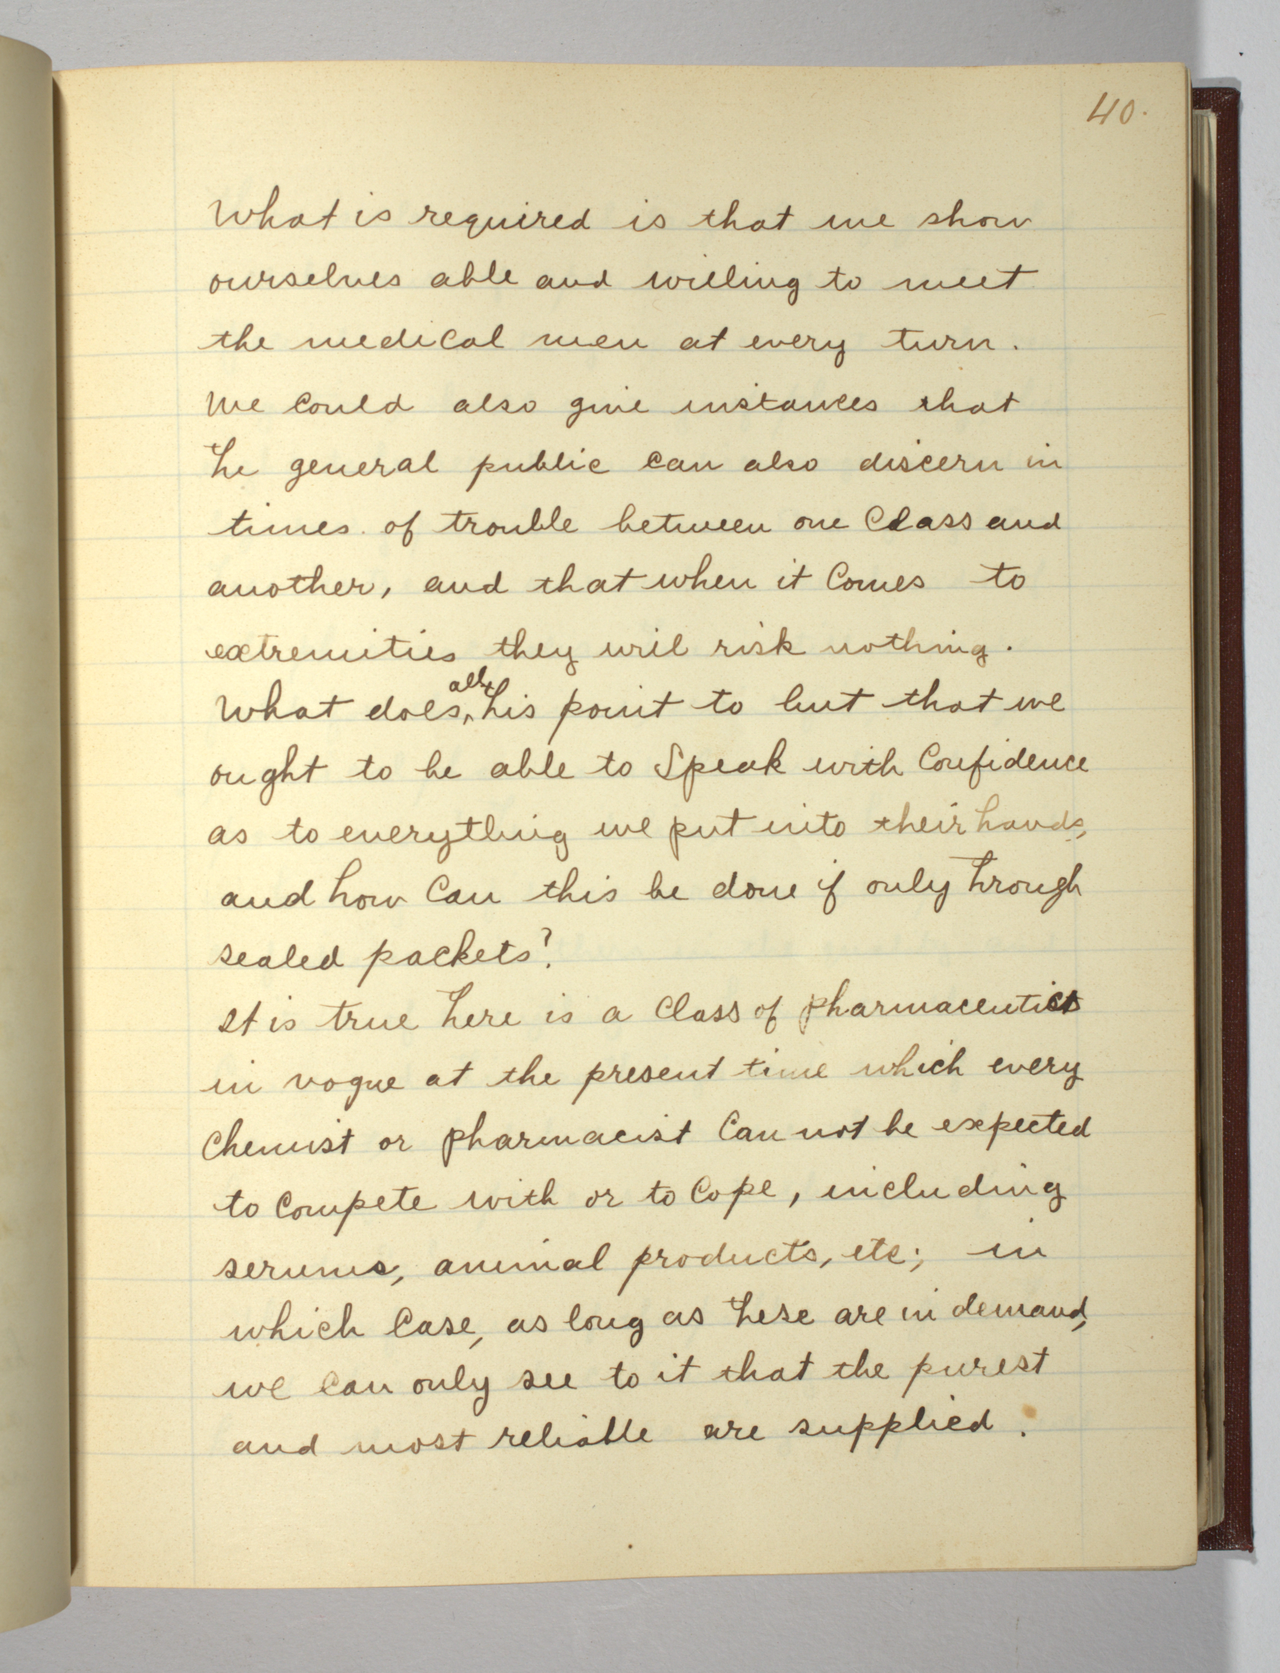 40.
What is required is that we show
ourselves able and willing to meet
the medical men at every turn.
We could also give instances that
the general public can also discern in
times of trouble between one Class and
another, and that when it Comes to
extremities they will risk nothing.
What does all this point to but that we
ought to be able to Speak with Confidence
as to everything we put into their hands,
and how Can this be done if only through
sealed packets?
It is true there is a Class of pharmaceutics
in vogue at the present time which every
Chemist or pharmacist Can not be expected
to Compete with or to Cope, including
serums, animal products, etc; in
which Case, as long as these are in demand,
we Can only see to it that the purest
and most reliable are supplied.